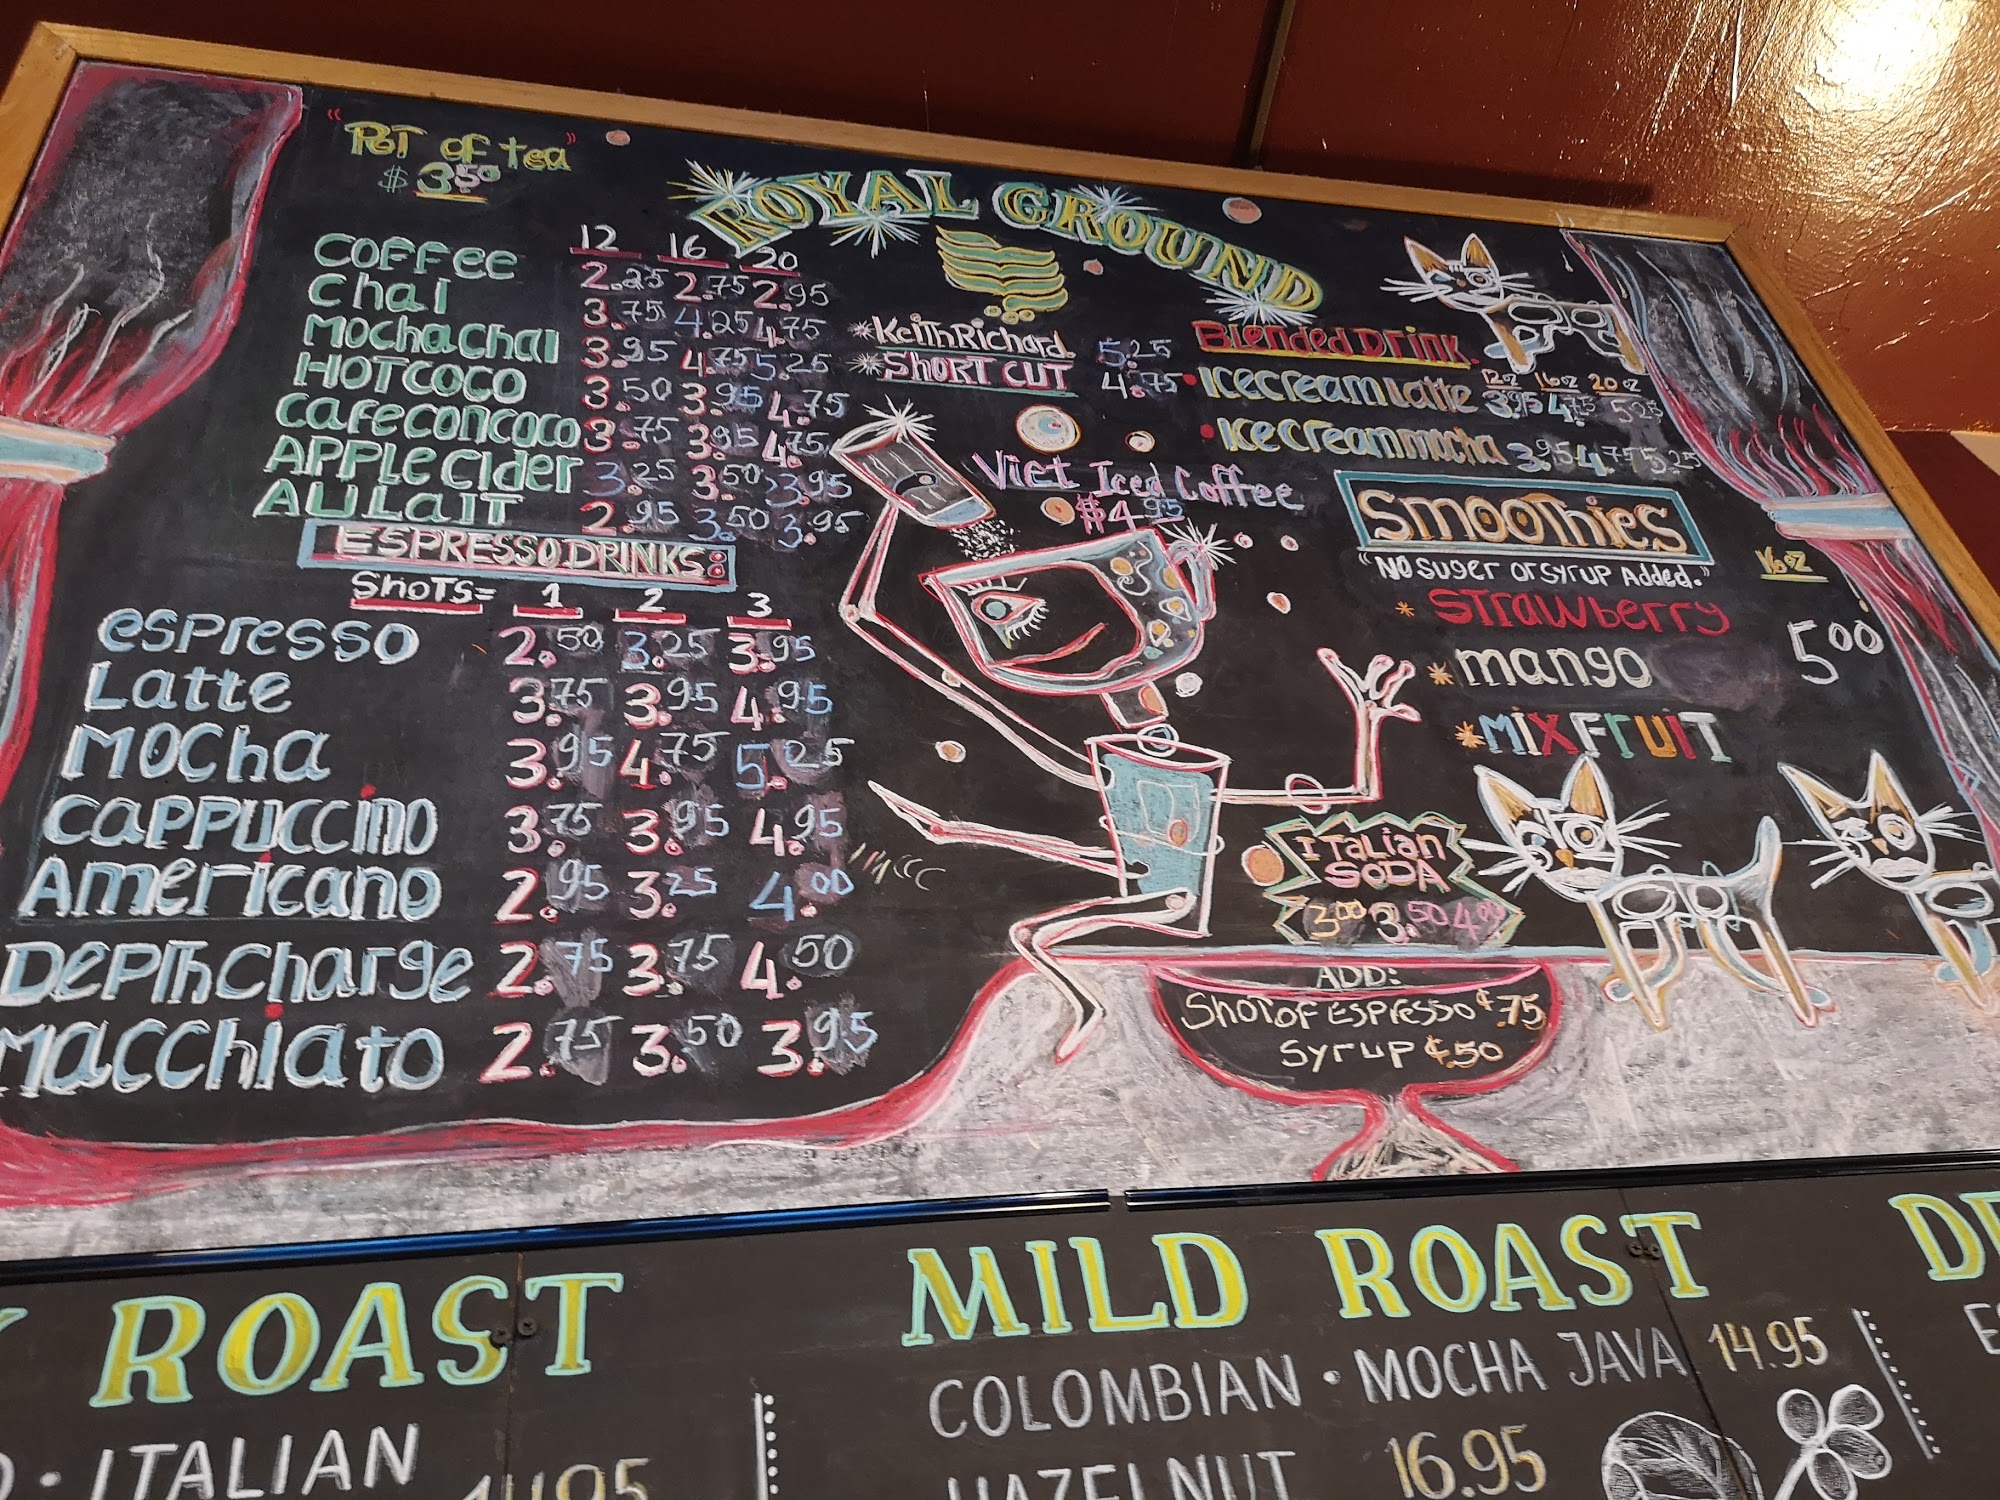 "Pot of tea"
$ 3.50
ROYAL GROUND
12 16 20
COFFEE 2.25 2.75 2.95
Chai 3.75 4.25 4.75
Mocha Chai 3.95 4.75 5.25
HOT COCO 3.50 3.95 4.75
Cafe con coco 3.75 3.95 4.75
APPLE Cider 3.25 3.50 3.95
AU LAIT 2.95 3.50 3.95
ESPRESSO DRINKS:
SHOTS= 1 2 3
espresso 2.50 3.25 3.95
Latte 3.75 3.95 4.95
Mocha 3.95 4.75 5.25
CAPPUCCINO 3.75 3.95 4.95
Americano 2.95 3.25 4.00
Depth Charge 2.75 3.75 4.50
Macchiato 2.75 3.50 3.95
*Keith Richard 5.25
*SHORT CUT 4.75
Viet Iced Coffee
$4.95
Blended Drink.
12oz 16oz 20oz
Icecream Latte 3.95 4.75 5.25
Icecream mocha 3.95 4.75 5.25
Smoothies
"No suger or syrup Added." 16oz
* Strawberry
* mango 5.00
* MIX FRUIT
ITALIAN
SODA
3.00 3.50 4.00
ADD:
Shot of Espresso ¢.75
Syrup ¢.50
ROAST
ITALIAN
MILD ROAST
COLOMBIAN • MOCHA JAVA 14.95
HAZELNUT 16.95